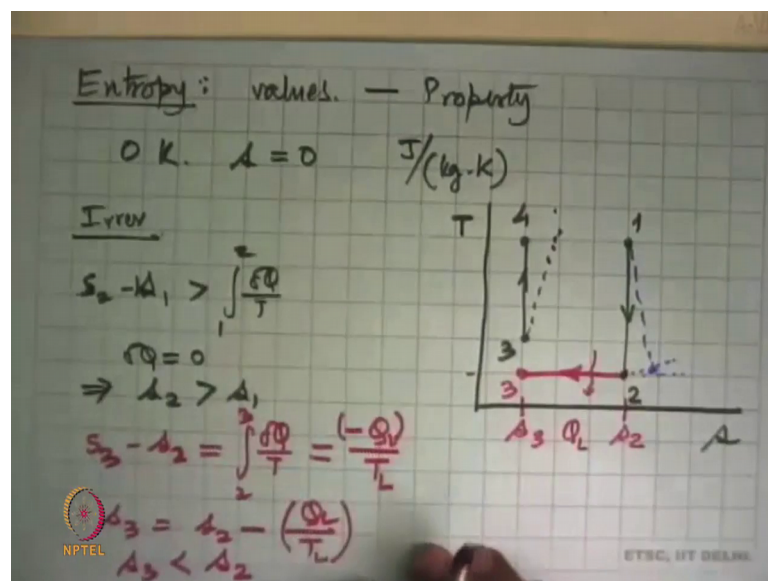 Entropy: values. — Property
0 K. s = 0 J/(kg-K)
Irrev
s₂ - s₁ > ∫₁² δQ/T
δQ = 0
⇒ s₂ > s₁
s₃ - s₂ = ∫₂³ δQ/T = (-Q_L)/T_L
s₃ = s₂ - (Q_L/T_L)
s₃ < s₂
T 4 1
3
3 2
s₃ Q_L s₂ s
NPTEL
ETSC, IIT DELHI